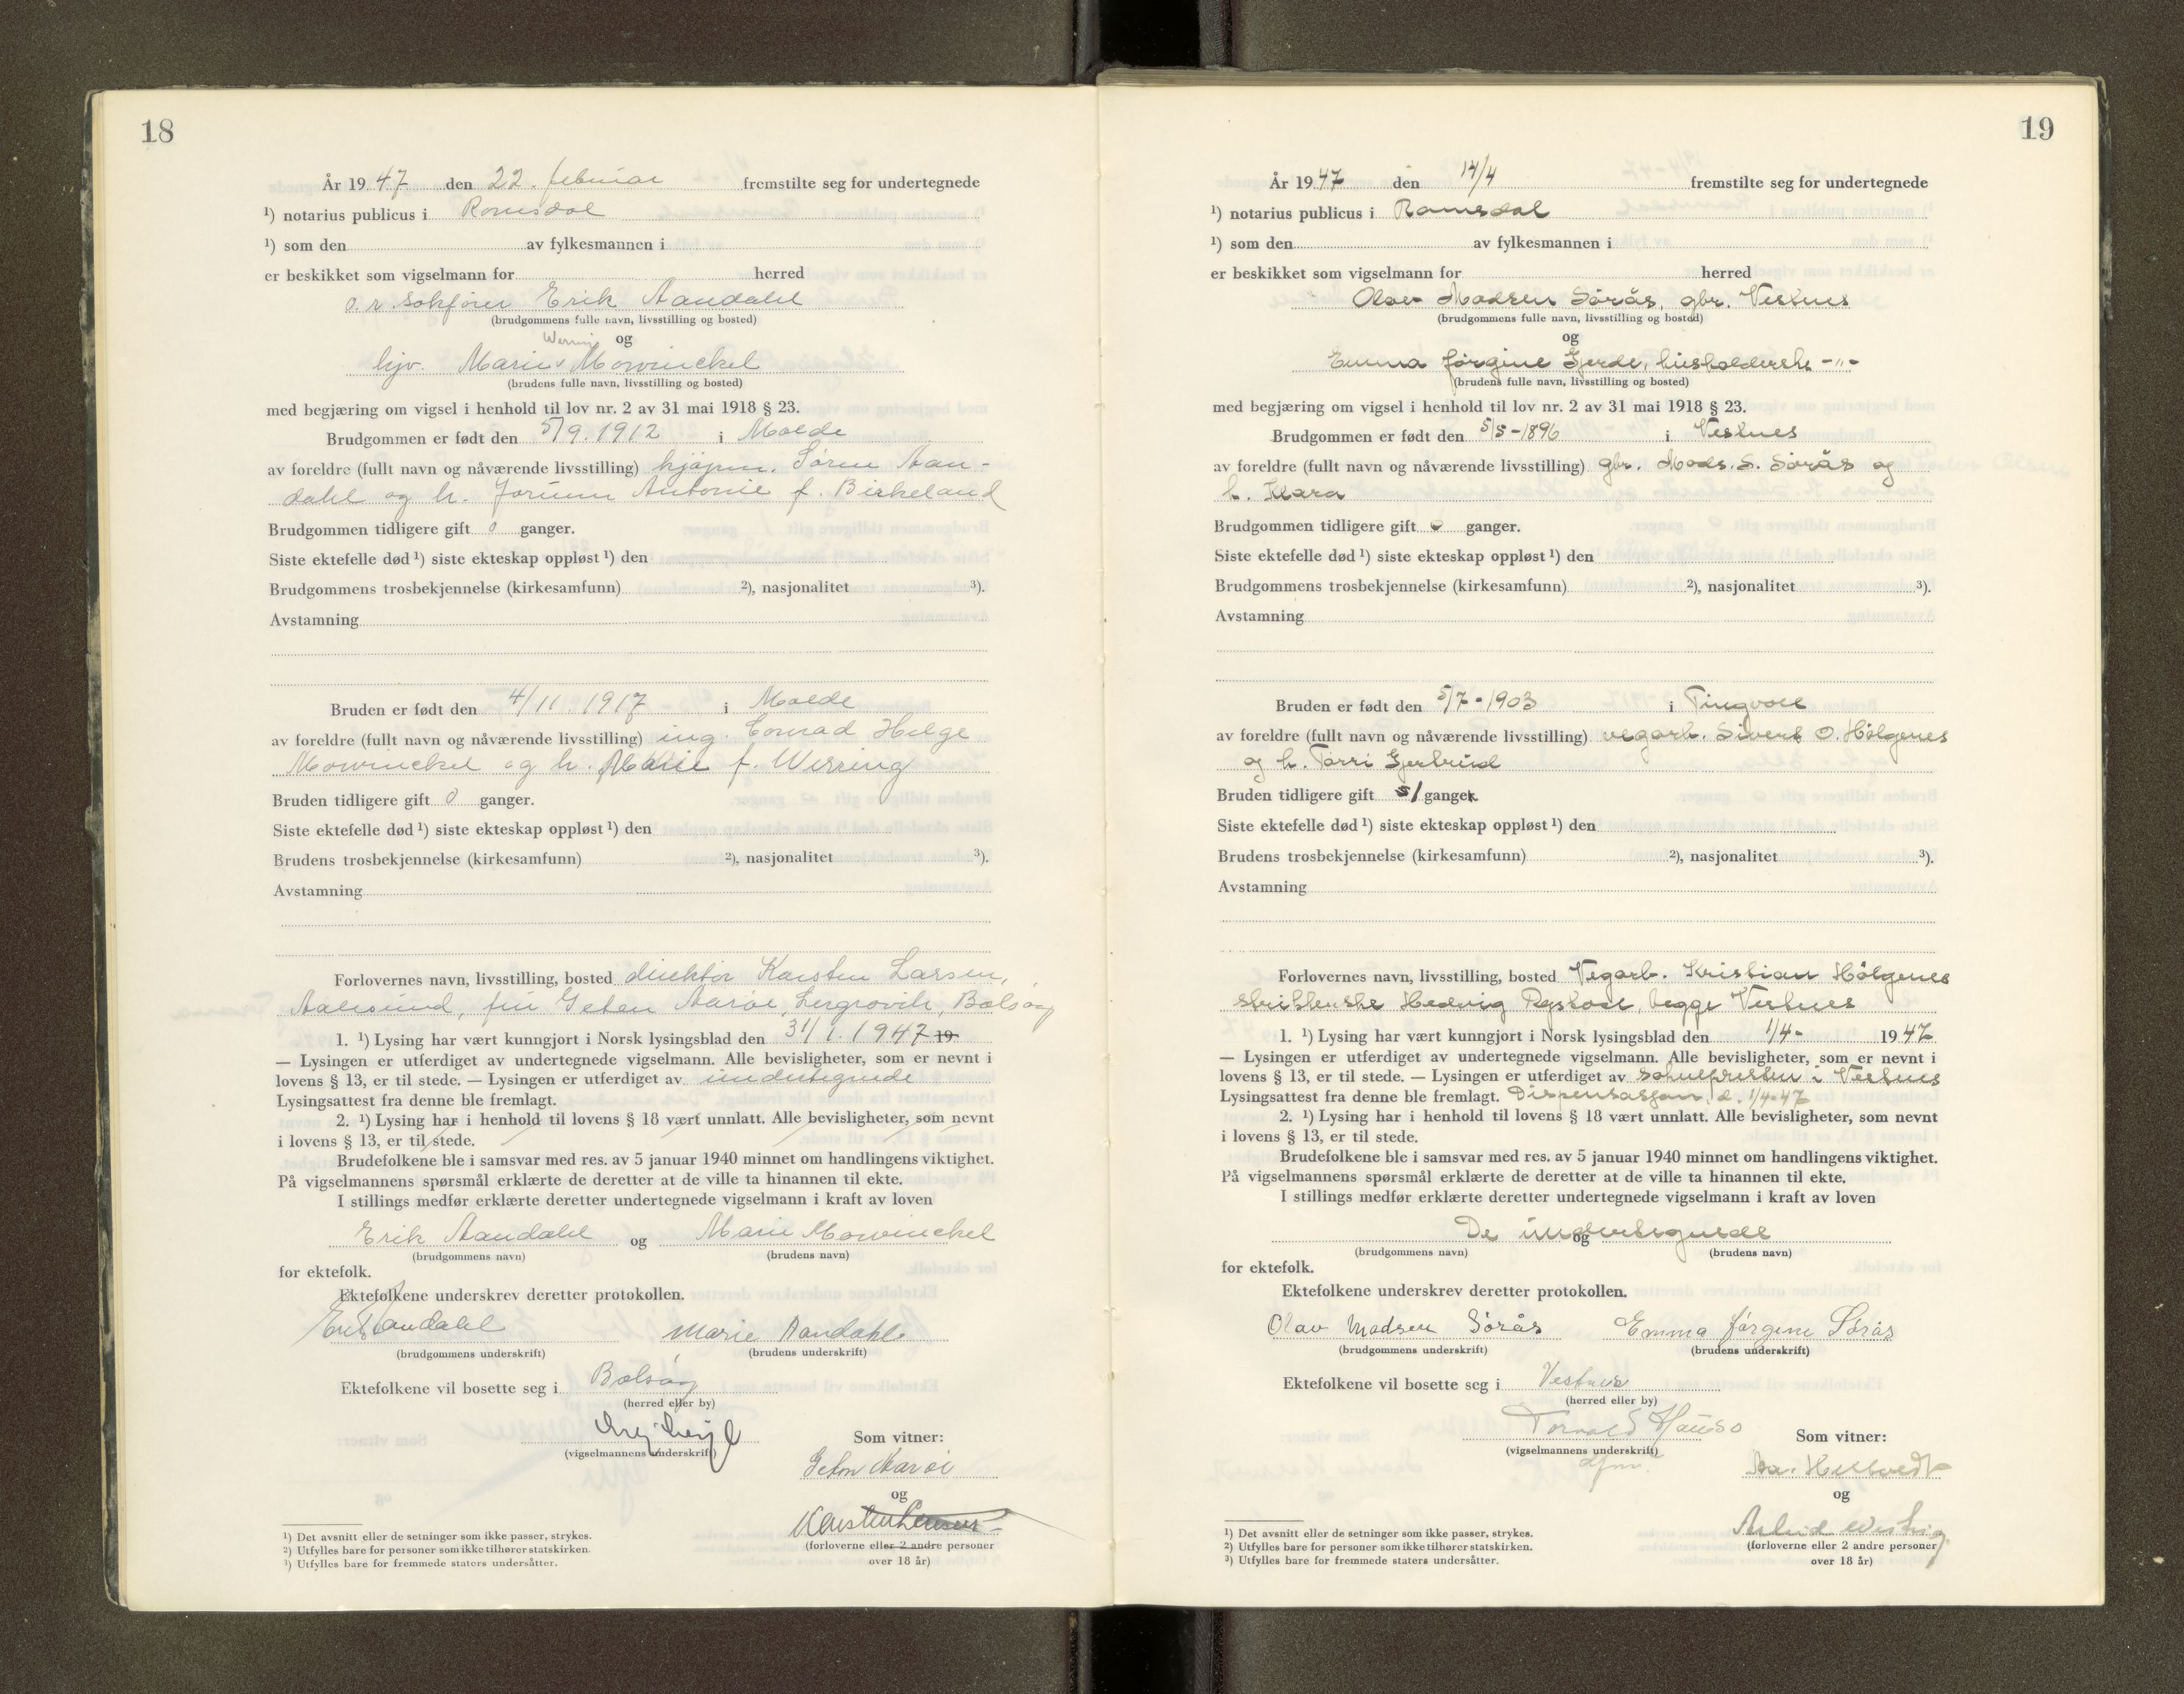 18
År 1947 den 22. februar fremstilte seg for undertegnede
¹) notarius publicus i Romsdal
¹) som den av fylkesmannen i
er beskikket som vigselmann for herred
o.r. sakfører Erik Aandahl
(brudgommens fulle navn, livsstilling og bosted)
Werring og
hjv. Marie Mowinckel
(brudens fulle navn, livsstilling og bosted)
med begjæring om vigsel i henhold til lov nr. 2 av 31 mai 1918 § 23.
Brudgommen er født den 5/9.1912 i Molde
av foreldre (fullt navn og nåværende livsstilling) kjøpm. Søren Aan-
dahl og h. Jorunn Antonie f. Birkeland
Brudgommen tidligere gift 0 ganger.
Siste ektefelle død ¹) siste ekteskap oppløst ¹) den
Brudgommens trosbekjennelse (kirkesamfunn) ²), nasjonalitet ³).
Avstamning
Bruden er født den 4/11.1917 i Molde
av foreldre (fullt navn og nåværende livsstilling) ing. Conrad Helge
Mowinckel og h. Marie f. Werring
Bruden tidligere gift 0 ganger.
Siste ektefelle død ¹) siste ekteskap oppløst ¹) den
Brudens trosbekjennelse (kirkesamfunn) ²), nasjonalitet ³).
Avstamning
Forlovernes navn, livsstilling, bosted direktør Karsten Larsen,
Aalesund, fru Aarøe, Bolsøy
1. ¹) Lysing har vært kunngjort i Norsk lysingsblad den 31/1.1947 19
— Lysingen er utferdiget av undertegnede vigselmann. Alle bevisligheter, som er nevnt i
lovens § 13, er til stede. — Lysingen er utferdiget av undertegnede
Lysingsattest fra denne ble fremlagt.
2. ¹) Lysing har i henhold til lovens § 18 vært unnlatt. Alle bevisligheter, som nevnt
i lovens § 13, er til stede.
Brudefolkene ble i samsvar med res. av 5 januar 1940 minnet om handlingens viktighet.
På vigselmannens spørsmål erklærte de deretter at de ville ta hinannen til ekte.
I stillings medfør erklærte deretter undertegnede vigselmann i kraft av loven
Erik Aandahl og Marie Mowinckel
(brudgommens navn) (brudens navn)
for ektefolk.
Ektefolkene underskrev deretter protokollen.
Erik Aandahl Marie Aandahl
(brudgommens underskrift) (brudens underskrift)
Ektefolkene vil bosette seg i Bolsøy
(herred eller by)
(vigselmannens underskrift) Som vitner:
Aarøe
og
Karsten Larsen
(forloverne eller 2 andre personer
over 18 år)
¹) Det avsnitt eller de setninger som ikke passer, strykes.
²) Utfylles bare for personer som ikke tilhører statskirken.
³) Utfylles bare for fremmede staters undersåtter.
19
År 1947 den 14/4 fremstilte seg for undertegnede
¹) notarius publicus i Romsdal
¹) som den av fylkesmannen i
er beskikket som vigselmann for herred
Olav Madsen Sørås, gbr. Vestnes
(brudgommens fulle navn, livsstilling og bosted)
og
Emma Jørgine Gjerde, husholderske -"-
(brudens fulle navn, livsstilling og bosted)
med begjæring om vigsel i henhold til lov nr. 2 av 31 mai 1918 § 23.
Brudgommen er født den 5/5-1896 i Vestnes
av foreldre (fullt navn og nåværende livsstilling) gbr. Mads. S. Sørås og
h. Klara
Brudgommen tidligere gift 0 ganger.
Siste ektefelle død ¹) siste ekteskap oppløst ¹) den
Brudgommens trosbekjennelse (kirkesamfunn) ²), nasjonalitet ³).
Avstamning
Bruden er født den 5/7-1903 i Tingvoll
av foreldre (fullt navn og nåværende livsstilling) vegarb. Sivert O. Hølgenes
og h. Gjertrud
Bruden tidligere gift 1 ganger.
Siste ektefelle død ¹) siste ekteskap oppløst ¹) den
Brudens trosbekjennelse (kirkesamfunn) ²), nasjonalitet ³).
Avstamning
Forlovernes navn, livsstilling, bosted Vegarb. Kristian Hølgenes
strikkerske Hedvig begge Vestnes
1. ¹) Lysing har vært kunngjort i Norsk lysingsblad den 1/4- 1947
— Lysingen er utferdiget av undertegnede vigselmann. Alle bevisligheter, som er nevnt i
lovens § 13, er til stede. — Lysingen er utferdiget av soknepresten i Vestnes
Lysingsattest fra denne ble fremlagt. Dispensasjon d. 1/4-47
2. ¹) Lysing har i henhold til lovens § 18 vært unnlatt. Alle bevisligheter, som nevnt
i lovens § 13, er til stede.
Brudefolkene ble i samsvar med res. av 5 januar 1940 minnet om handlingens viktighet.
På vigselmannens spørsmål erklærte de deretter at de ville ta hinannen til ekte.
I stillings medfør erklærte deretter undertegnede vigselmann i kraft av loven
De undertegnede
og
(brudgommens navn) (brudens navn)
for ektefolk.
Ektefolkene underskrev deretter protokollen.
Olav Madsen Sørås Emma Jørgine Sørås
(brudgommens underskrift) (brudens underskrift)
Ektefolkene vil bosette seg i Vestnes
(herred eller by)
Torvald Hauso
(vigselmannens underskrift) Som vitner:
dfm.
og
Arlud
(forloverne eller 2 andre personer
over 18 år)
¹) Det avsnitt eller de setninger som ikke passer, strykes.
²) Utfylles bare for personer som ikke tilhører statskirken.
³) Utfylles bare for fremmede staters undersåtter.